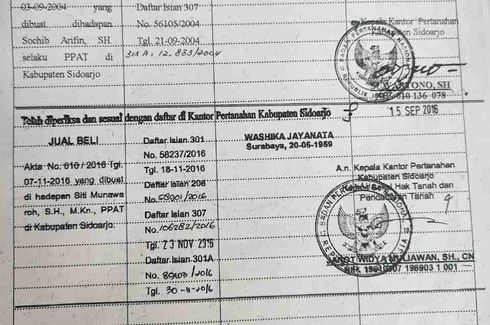 03-09-2004 yang
dibuat dihadapan
Sochib Arifin, SH.
selaku PPAT di
Kabupaten Sidoarjo
Daftar Isian 307
No. 56105/2004
Tgl. 21-09-2004
301 A; 12.883/2004
Kepala Kantor Pertanahan
Sidoarjo
TONO, SH
010 136 078
Telah diperiksa dan sesuai dengan daftar di Kantor Pertanahan Kabupaten Sidoarjo
15 SEP 2016
JUAL BELI
Akta No. 610/2016 Tgl.
07-11-2016 yang dibuat
di hadapan Siti Munawa
roh, S.H., M.Kn., PPAT
di Kabupaten Sidoarjo.
Daftar Isian 301
No. 58237/2016
Tgl. 18-11-2016
Daftar Isian 208
No. /2016
Daftar Isian 307
No. 106282/2016
Tgl. 23 NOV 2016
Daftar Isian 301A
No. /2016
Tgl. 30-11-2016
WASHIKA JAYANATA
Surabaya, 20-05-1959
A.n. Kepala Kantor Pertanahan
Kabupaten Sidoarjo
Hak Tanah dan
Tanah
WIDYA MULIAWAN, SH., CN
198903 1 001